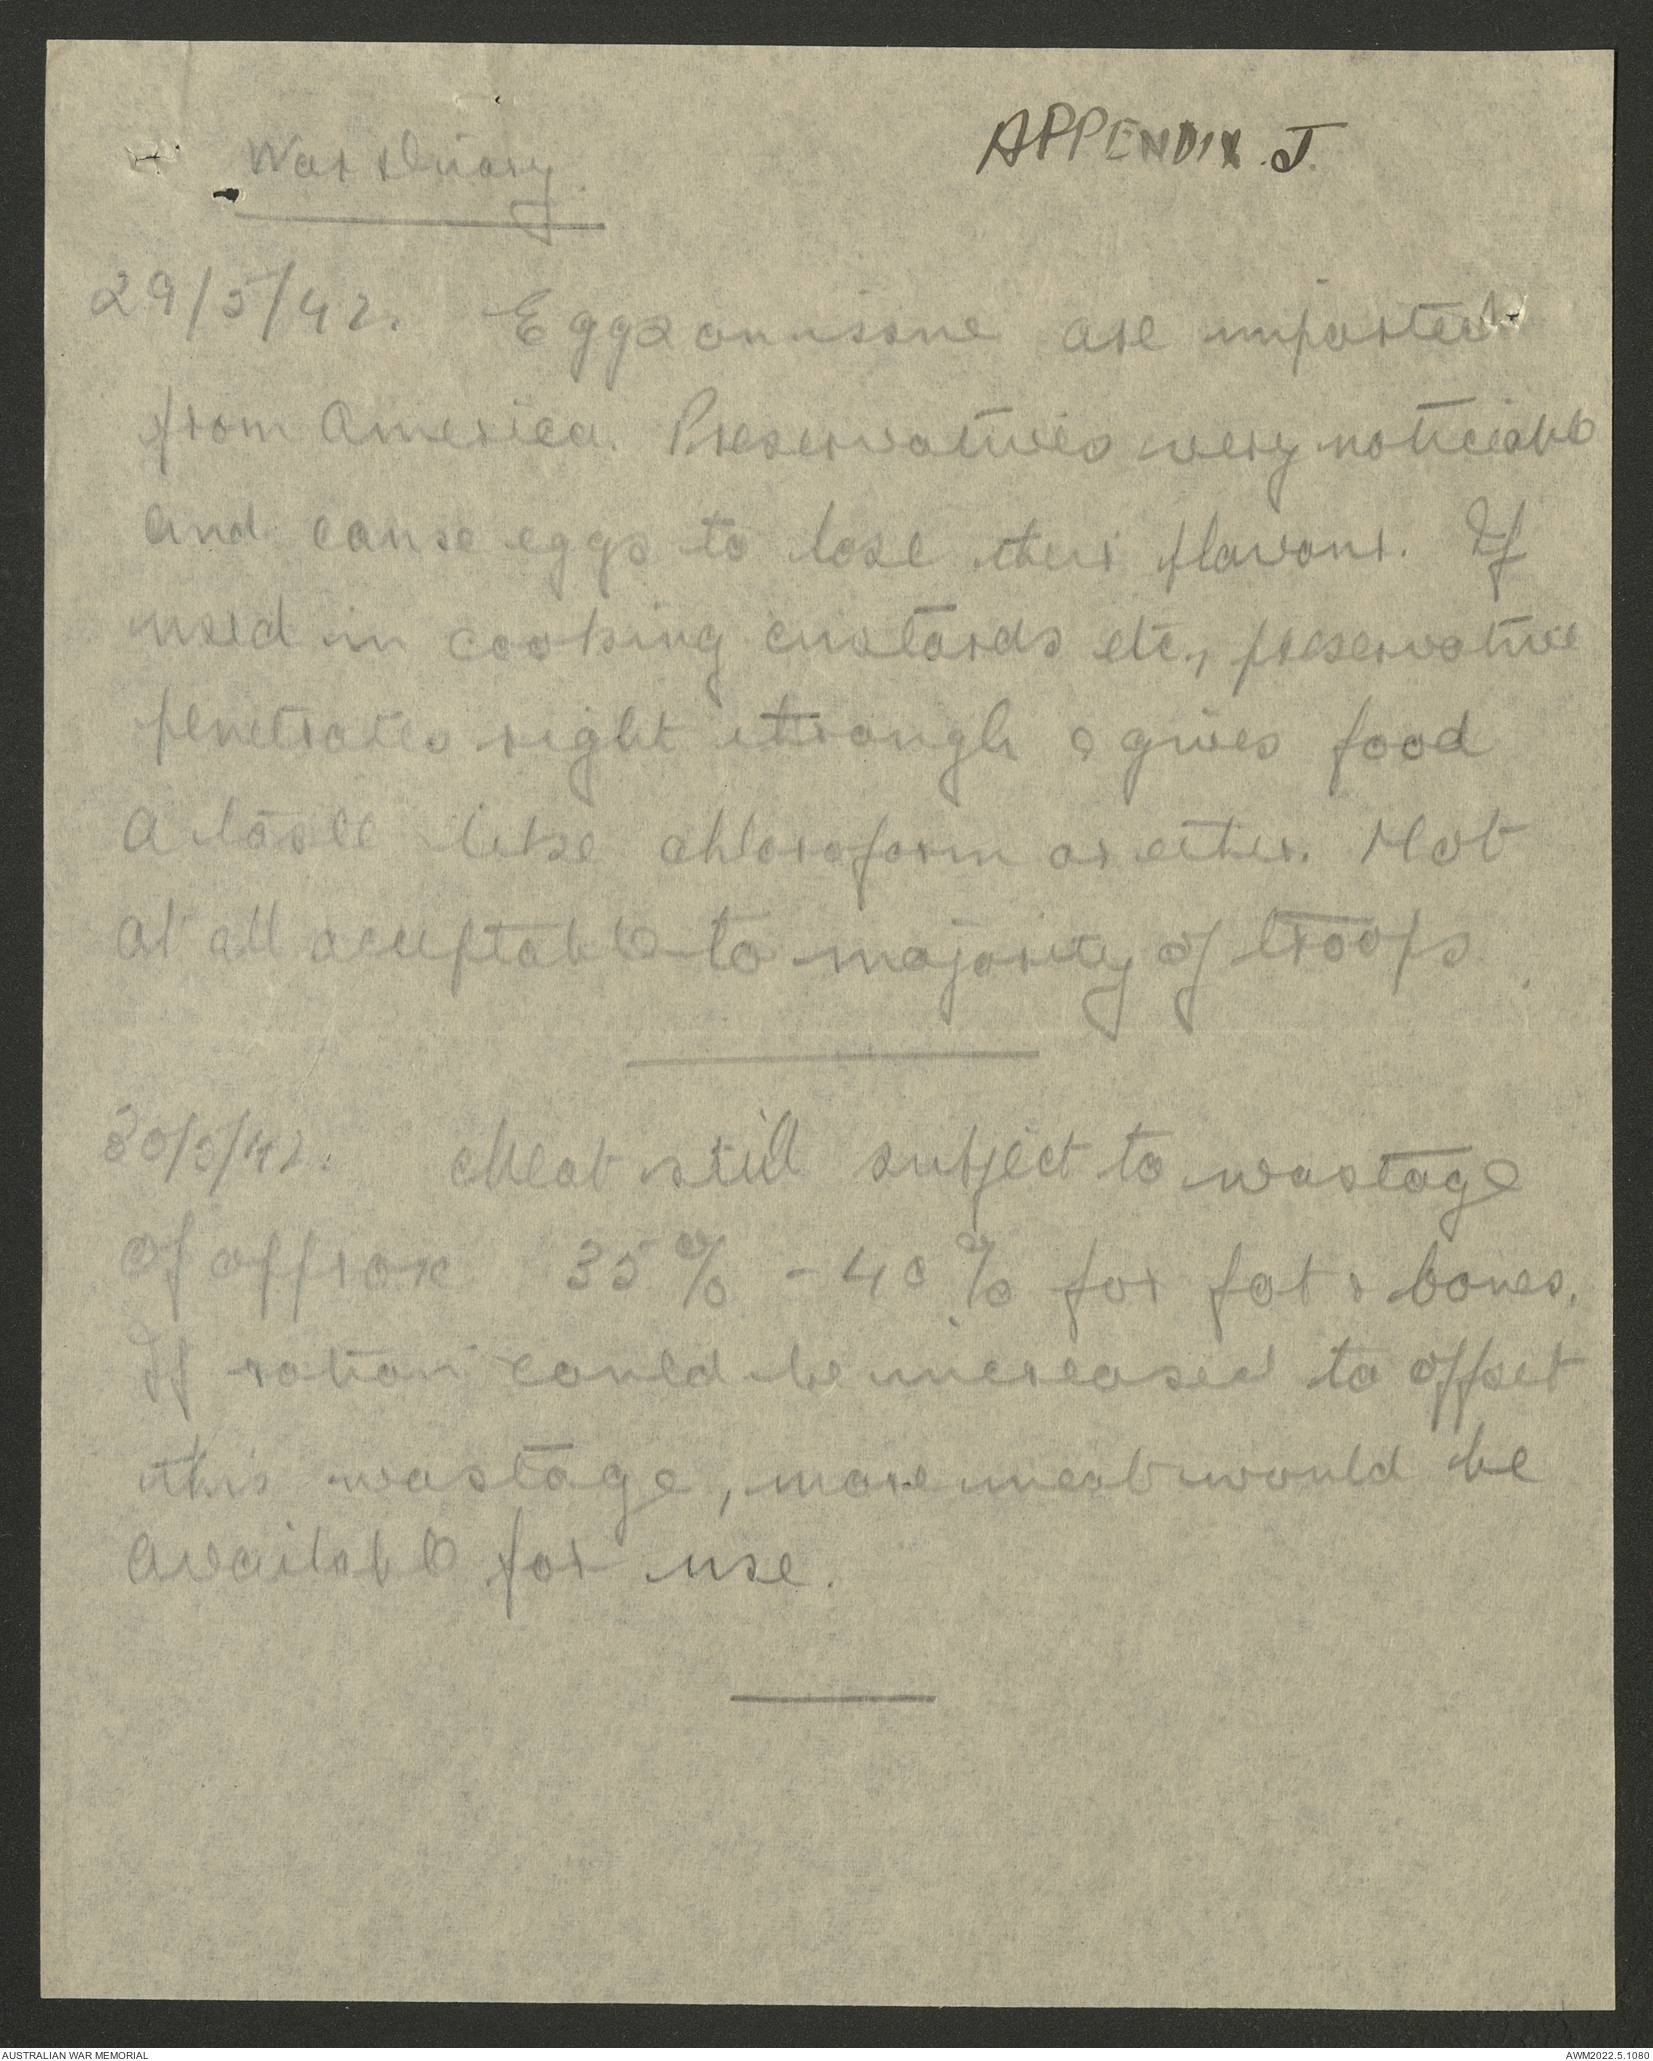 War Diary.
APPENDIX. J.
29/5/42. Eggs on issue are imported
from America. Preservatives very noticeable
and cause eggs to lose their flavour. If
used in cooking custards etc., preservative
penetrates right through & gives food
a taste like chloroform or ether. Not
at all acceptable to majority of troops.
30/5/42. Meat still subject to wastage
of approx 35% - 40% for fat & bones.
If ration could be increased to offset
this wastage, more meat would be
available for use.
AUSTRALIAN WAR MEMORIAL
AWM2022.5.1080